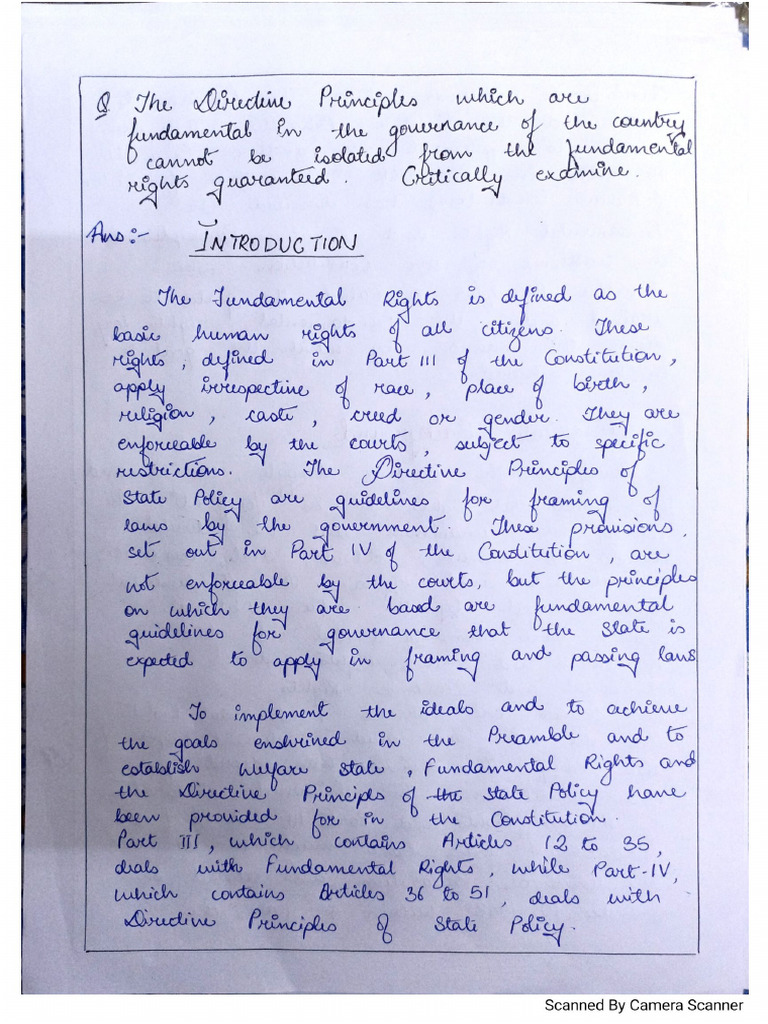 Q The Directive Principles which are
fundamental in the governance of the country
cannot be isolated from the fundamental
rights guaranteed. Critically examine.
Ans:- INTRODUCTION
The Fundamental Rights is defined as the
basic human rights of all citizens. These
rights, defined in Part III of the Constitution,
apply irrespective of race, place of birth,
religion, caste, creed or gender. They are
enforceable by the courts, subject to specific
restrictions. The Directive Principles of
State Policy are guidelines for framing of
laws by the government. These provisions,
set out in Part IV of the Constitution, are
not enforceable by the courts, but the principles
on which they are based are fundamental
guidelines for governance that the State is
expected to apply in framing and passing laws
To implement the ideals and to achieve
the goals enshrined in the Preamble and to
establish welfare state, Fundamental Rights and
the Directive Principls of the State Policy have
been provided for in the Constitution.
Part III, which contains Articles 12 to 35,
deals with Fundamental Rights, while Part-IV,
which contains Articles 36 to 51, deals with
Directive Principles of State Policy.
Scanned By Camera Scanner